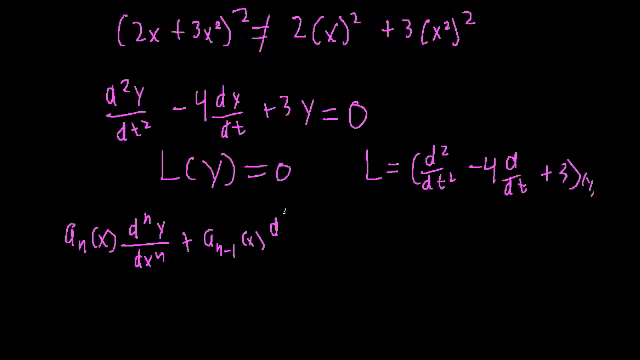 (2x + 3x²)² ≠ 2(x)² + 3(x²)²
d²y/dt² - 4 dy/dt + 3y = 0
L(y) = 0    L = (d²/dt² - 4 d/dt + 3)(y)
aₙ(x) dⁿy/dxⁿ + aₙ₋₁(x) d